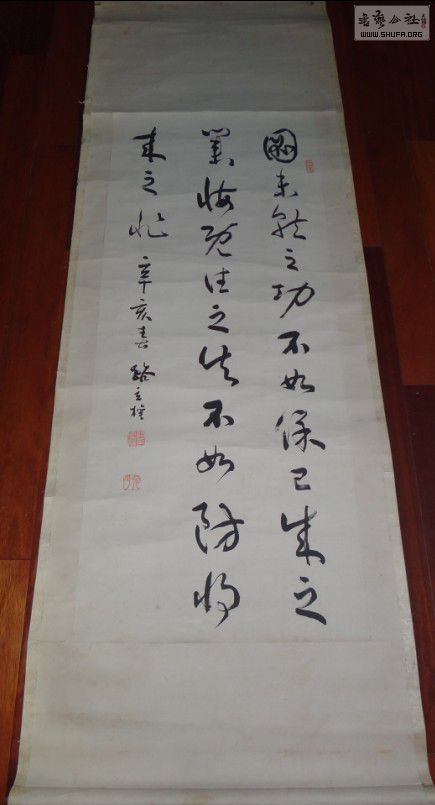 書藝公社
WWW.SHUFA.ORG
圖未就之功不如保已成之
業悔既往之失不如防將
來之非 辛亥春